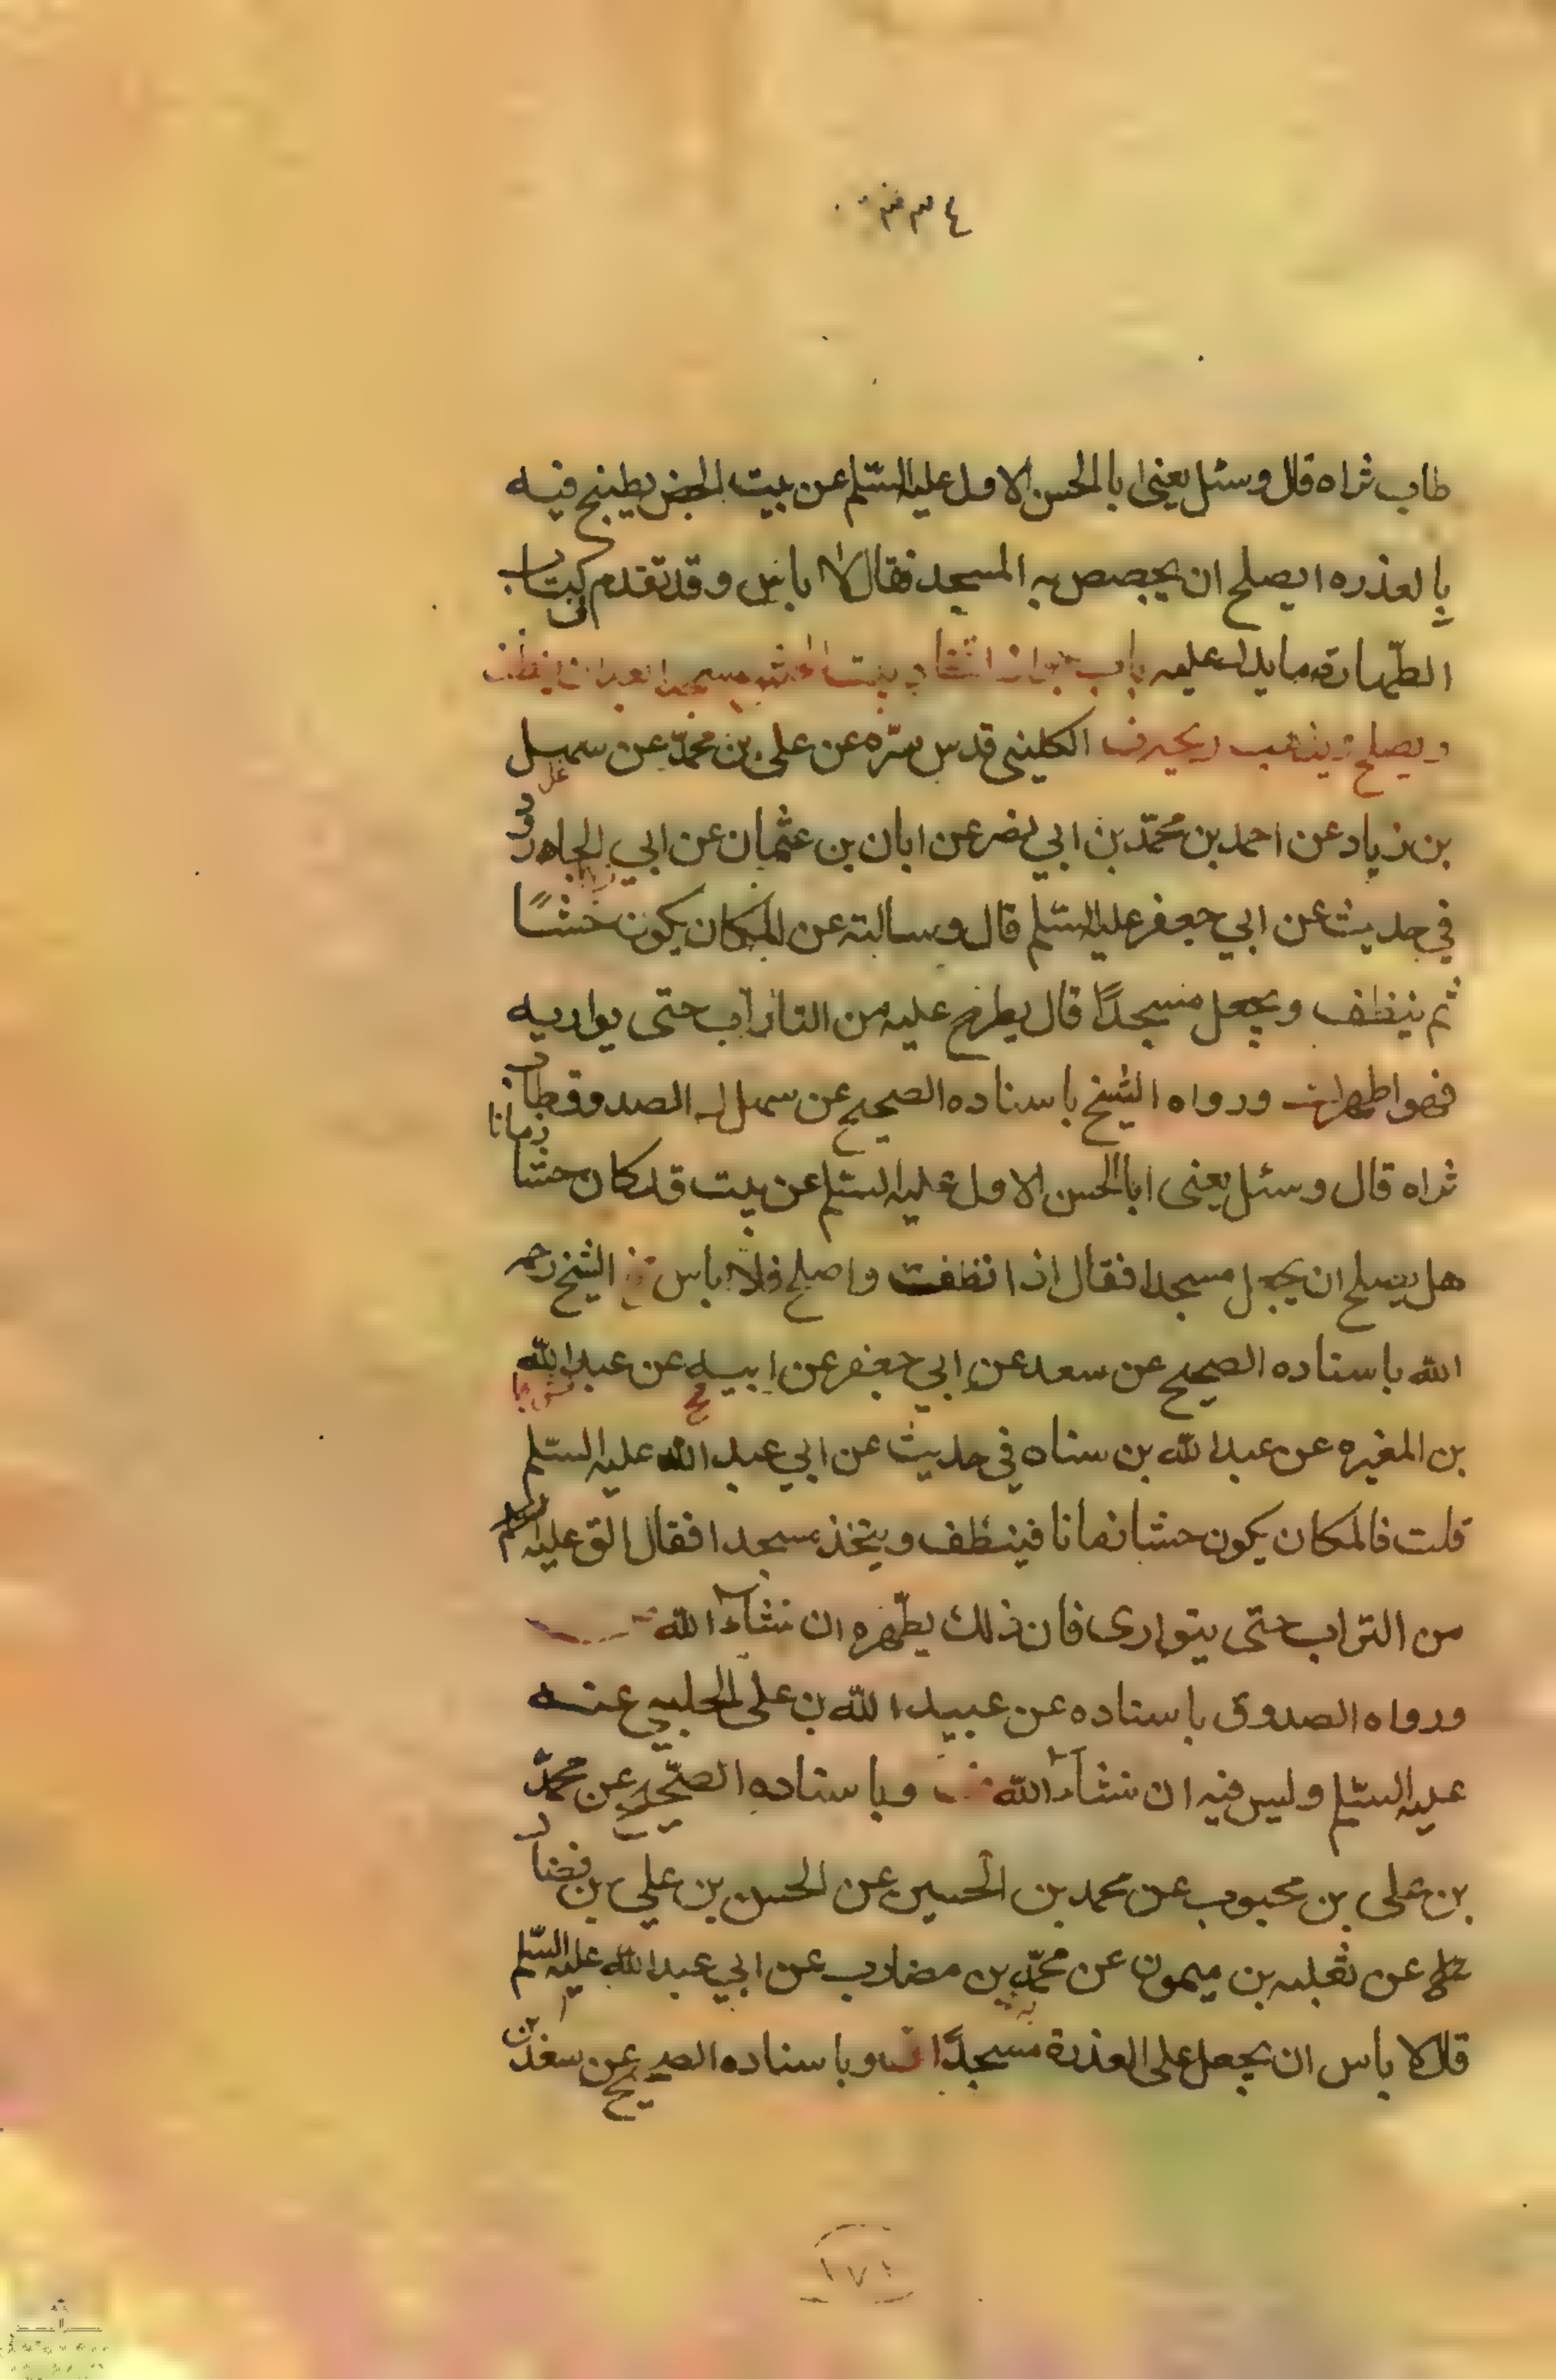 ٤٣٣
طاب ثراه قال وسئل يعنى ابا الحسن الاول عليه السّلم عن بيت الجص يطبخ فيه
بالعذره ايصلح ان يجصص به المسجد فقال لا باس وقد تقدم في كتاب
الطّهارة ما يدل عليه باب جواز اتخاذ بيت الحش مسجدا بعد ان ينظف
ويصلح الكلينى قدس سرّه عن على بن محمّد عن سهل
بن زياد عن احمد بن محمّد بن ابي نصر عن ابان بن عثمان عن ابي الجارود
في حديث عن ابي جعفر عليه السّلم قال وسالته عن المكان يكون حشًا
ثم ينظف ويجعل مسجدًا قال يطرح عليه من التراب حتى يواريه
فهو اطهر ورواه الشيخ باسناده الصحيح عن سهل الصدوق طاب
ثراه قال وسئل يعنى ابا الحسن الاول عليه السلم عن بيت قد كان حشا زمانا
هل يصلح ان يجعل مسجدا فقال اذا نظفت واصلح فلا باس الشيخ رحمه
الله باسناده الصحيح عن سعد عن ابي جعفر عن ابيه عن عبد الله
بن المغيره عن عبد الله بن سناه في حديث عن ابي عبد الله عليه السلم
قلت فالمكان يكون حشا زمانا فينظف ويتخذ مسجدا فقال الق عليه
من التراب حتى يتوارى فان ذلك يطّهره ان شآء الله
ورواه الصدوق باسناده عن عبيد الله بن على الحلبي عنه
عليه السّلم وليس فيه ان شآء الله وباسناده الصّحيح عن محمّد
بن على بن محبوب عن محمد بن الحسين عن الحسن بن علي بن فضال
عن ثعلبه بن ميمون عن محمّد بن مضارب عن ابي عبد الله عليه السّلم
قال لا باس ان يجعل على العذرة مسجدًا وباسناده الصحيح عن سعد بن
١٧١